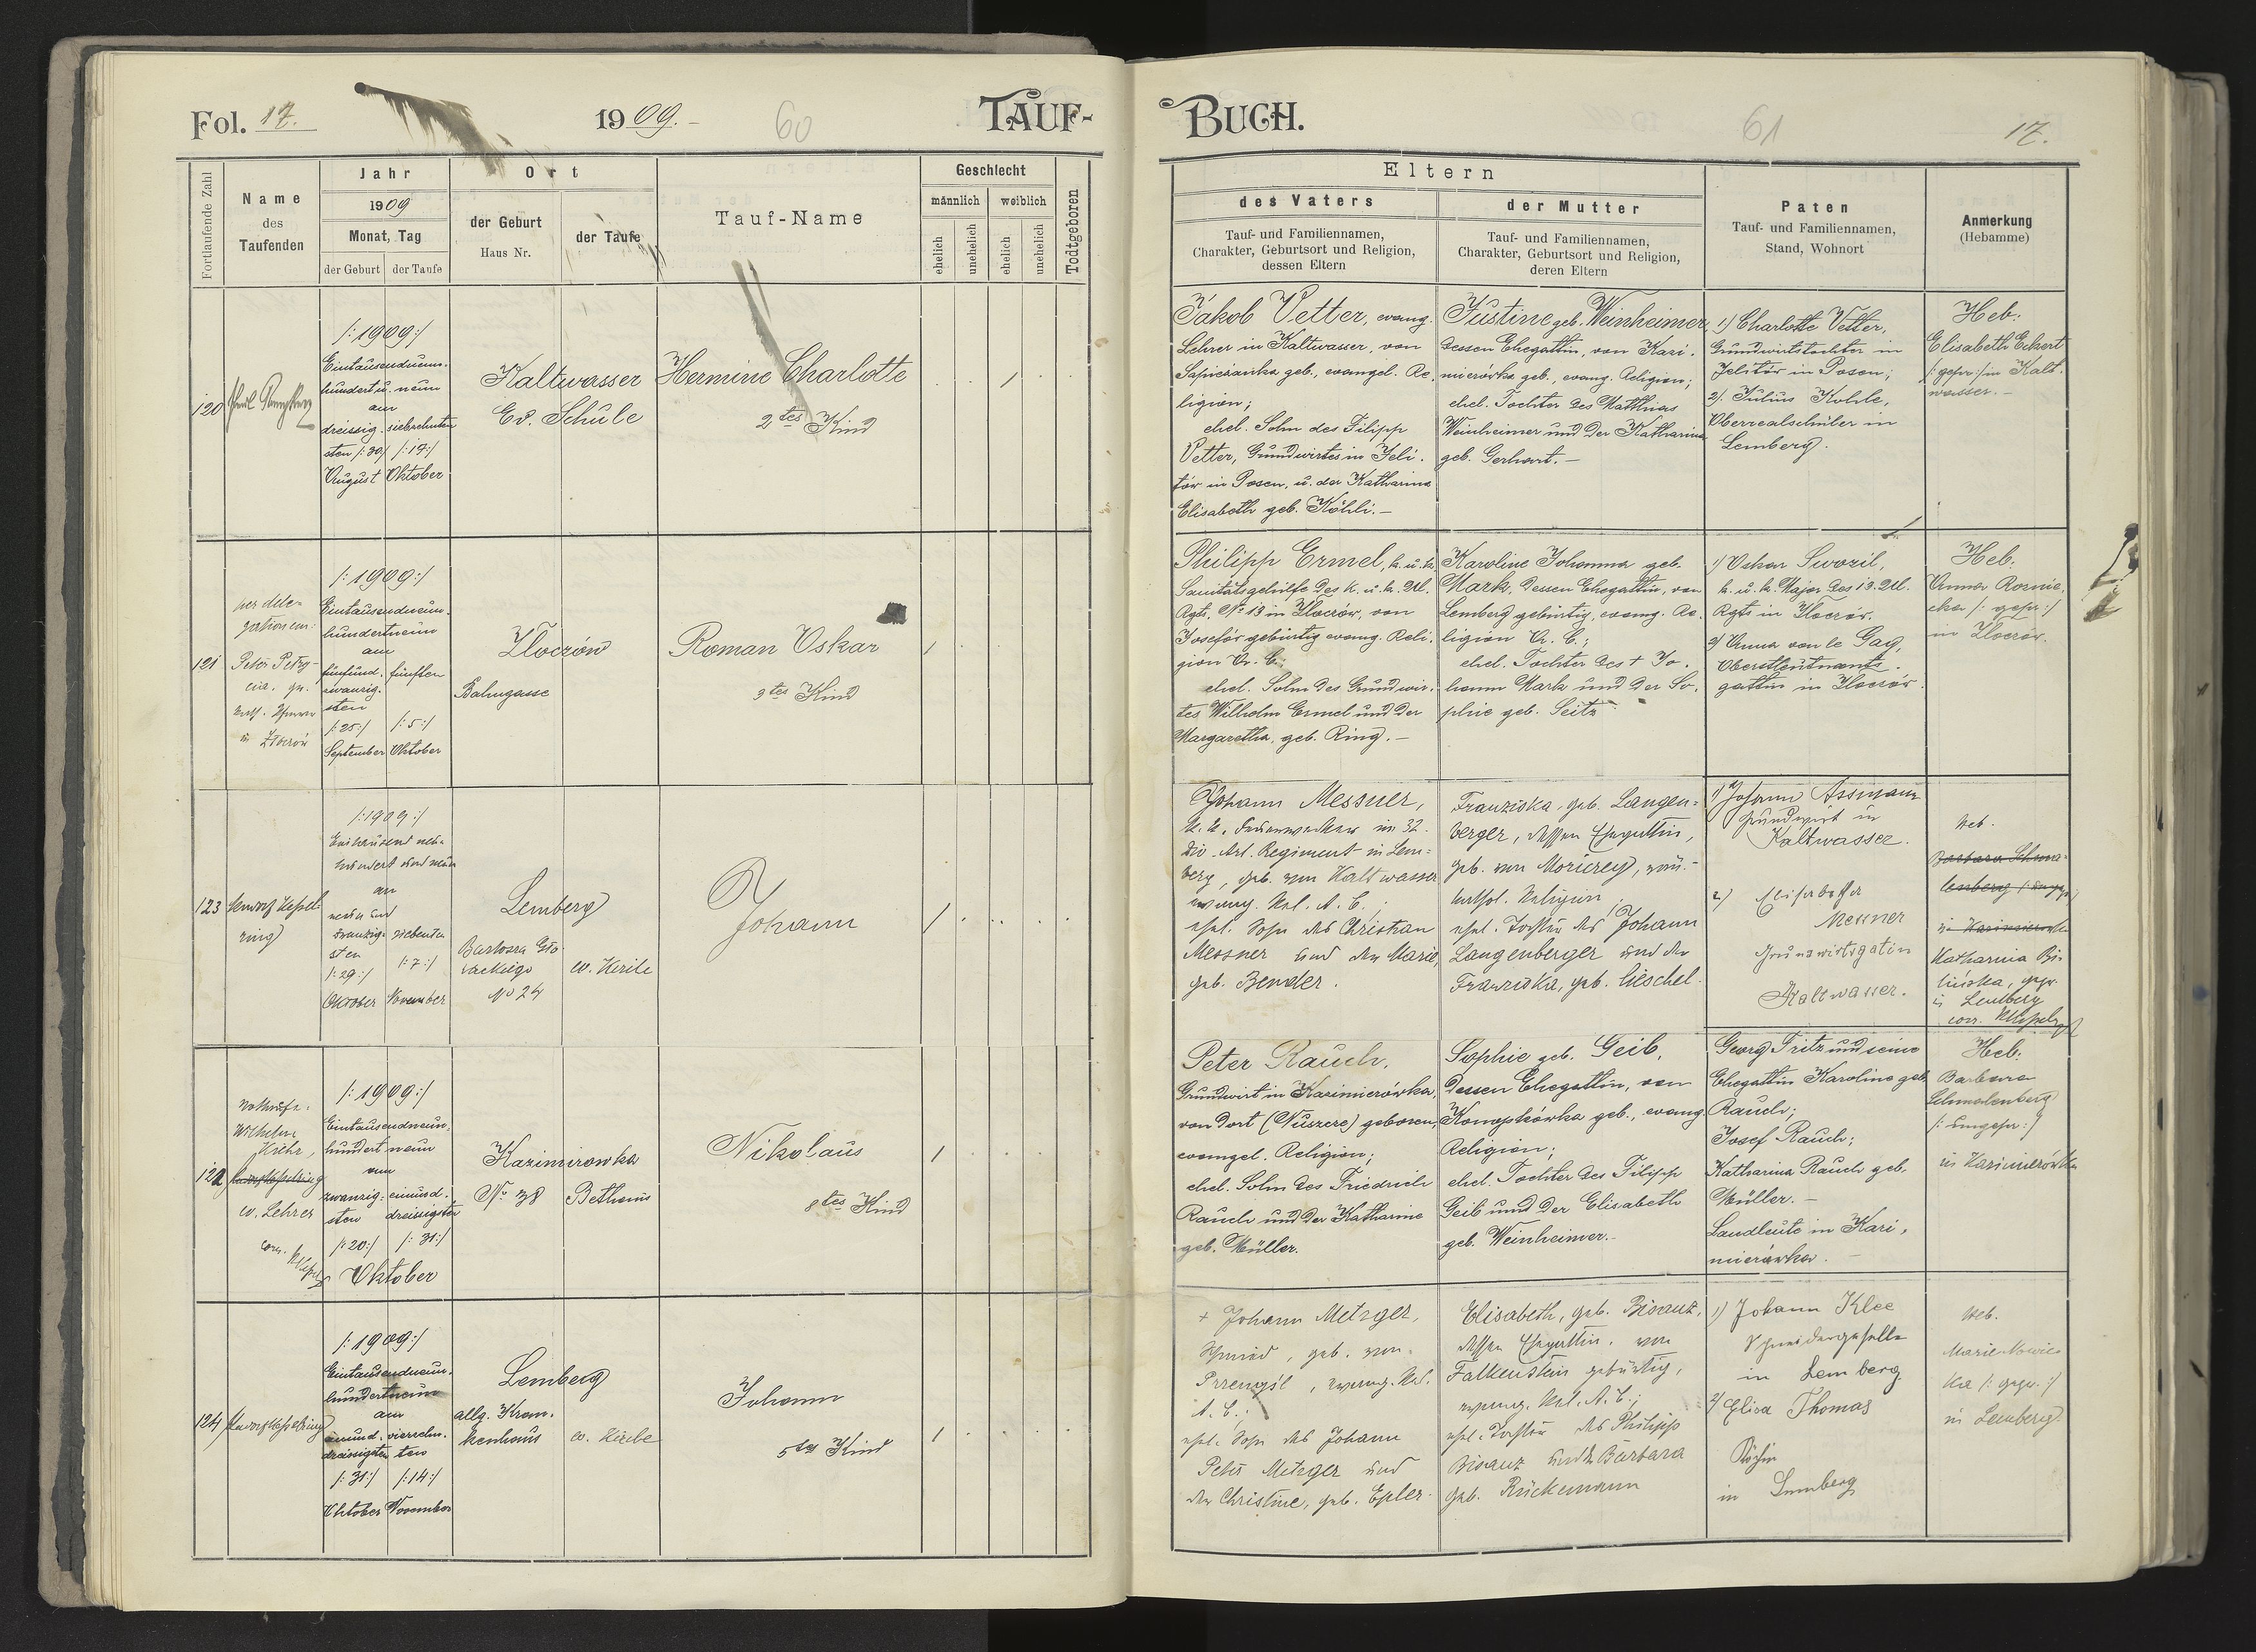 Fol. 17.
1909.
60
TAUF-
Fortlaufende Zahl
Name
des
Taufenden
Jahr
1909
Monat, Tag
der Geburt
der Taufe
Ort
der Geburt
Haus Nr.
der Taufe
Tauf-Name
Geschlecht
männlich
weiblich
ehelich
unehelich
ehelich
unehelich
Todtgeboren
120
/:1909:/
Eintausendneun-
hundert u. neun
am
dreissig-
sten /:30:/
August
siebzehnten
Oktober
Kaltwasser
Ev. Schule
Hermine Charlotte
2tes Kind
121
per dele-
gationem:
/:1909:/
Eintausendneun-
hundertneun
am
fünfund-
zwanzig-
sten
/:25:/
September
fünften
/:5:/
Oktober
Złoczów
Bahngasse
Roman Oskar
3tes Kind
123
/:1909:/
Eintausend neun-
hundert und neun
am
neun und
zwanzig-
sten
/:29:/
Oktober
siebenten
/:7:/
November
Lemberg
Bartosza Gło-
wackiego
No 24
ev. Kirche
Johann
122
Nottaufe:
Wilhelm
ev. Lehrer
/:1909:/
Eintausendneun-
hundert neun
am
zwanzig-
sten
/:20:/
einund-
dreissigsten
/:31:/
Oktober
Kazimirowka
No. 38
Bethaus
Nikolaus
8tes Kind
124
/:1909:/
Eintausendneun-
hundertneun
am
einund-
dreissigsten
/:31:/
Oktober
vierzehn-
ten
/:14:/
November
Lemberg
allg. Kran-
kenhaus
ev. Kirche
Johann
5tes Kind
BUCH.
61
17.
Eltern
des Vaters
Tauf- und Familiennamen,
Charakter, Geburtsort und Religion,
dessen Eltern
der Mutter
Tauf- und Familiennamen,
Charakter, Geburtsort und Religion,
deren Eltern
Paten
Tauf- und Familiennamen,
Stand, Wohnort
Anmerkung
(Hebamme)
Jakob Vetter, evang.
Lehrer in Kaltwasser, von
Sapieżanka geb., evangel. Re-
ligion;
ehel. Sohn des Filipp
Vetter, Grundwirtes in Jeli-
tów in Posen, u. der Katharina
Elisabeth geb. Köhli.-
Justine geb. Weinheimer,
dessen Ehegattin, von Kazi-
mierówka geb., evang. Religion;
ehel. Tochter des Matthias
Weinheimer und der Katharina
geb. Gerhart.-
1) Charlotte Vetter,
Grundwirtstochter in
Jelitów in Posen;
2). Julius Kohle,
Oberrealschüler in
Lemberg.
Heb:
Elisabeth Eckert
/:gepr:/ in Kalt-
wasser.-
Philipp Ermel, k. u. k.
Sanitätsgehilfe des k. u. k. Ul.
Rgts. No 13 in Złoczów, von
Josefów gebürtig evang. Reli-
gion A. C.;
ehel. Sohn des Grundwir-
tes Wilhelm Ermel und der
Margaretha, geb. Ring.-
Karoline Johanna geb.
Mark, dessen Ehegattin, von
Lemberg gebürtig, evang. Re-
ligion A. C.;
ehel. Tochter des + Jo-
hann Mark und der So-
phie geb. Seitz
1) Oskar Swozil,
k. u. k. Major des 13. Ul.
Rgts in Złoczów.
2) Anna von le Gay,
Oberstleutnants-
gattin in Złoczów.
Heb:
Anna
/: gepr:/
in Złoczów.
Johann Messner,
k. k. Feuerwerker im 32.
Div. Art. Regiment in Lem-
berg, geb. von Kaltwasser
evang. Rel. A. C.;
ehel. Sohn des Christian
Messner und der Marie,
geb. Bender.
Franziska, geb. Langen-
berger, dessen Ehegattin,
geb. von
kathol. Religion;
ehel. Tochter des Johann
Langenberger und der
Franziska, geb.
1) Johann Assmann
Grundwirt in
Kaltwasser.
2) Elisabetha
Messner
Grundwirtsgatin
Kaltwasser.
Heb.
Barbara Schma-
lenberg
in Kazimierówka
Katharina Bi-
lińska, gepr.
in Lemberg
Peter Rauch,
Grundwirt in Kazimierówka,
von dort (Nuszcze) geboren,
evangel. Religion;
ehel. Sohn des Friedrich
Rauch und der Katharine
geb. Müller.
Sophie geb. Geib,
dessen Ehegattin, von
Konopkówka geb., evang.
Religion;
ehel. Tochter des Filipp
Geib und der Elisabeth
geb. Weinheimer.-
Georg Fritz und seine
Ehegattin Karoline geb.
Rauch;
Josef Rauch;
Katharina Rauch geb.
Müller.-
Landleute in Kazi-
mierówka.-
Heb:
Barbara
Schmalenberg
/: ungepr:/
in Kazimierówka
+ Johann Metzger,
Schmied, geb. von
Przemyśl, evang. Rel.
A. C.;
ehel. Sohn des Johann
Peter Metzger und
der Christine, geb. Epler.
Elisabeth, geb. Bisanz,
dessen Ehegattin, von
Falkenstein gebürtig,
evang. Rel. A. C.;
ehel. Tochter des Philipp
Bisanz und d. Barbara
geb. Rückemann
1) Johann Klee
Schneidergeselle
in Lemberg
2) Elisa Thomas
Köchin
in Lemberg
Heb.
Marie Nowic-
ka /: gepr. :/
in Lemberg.